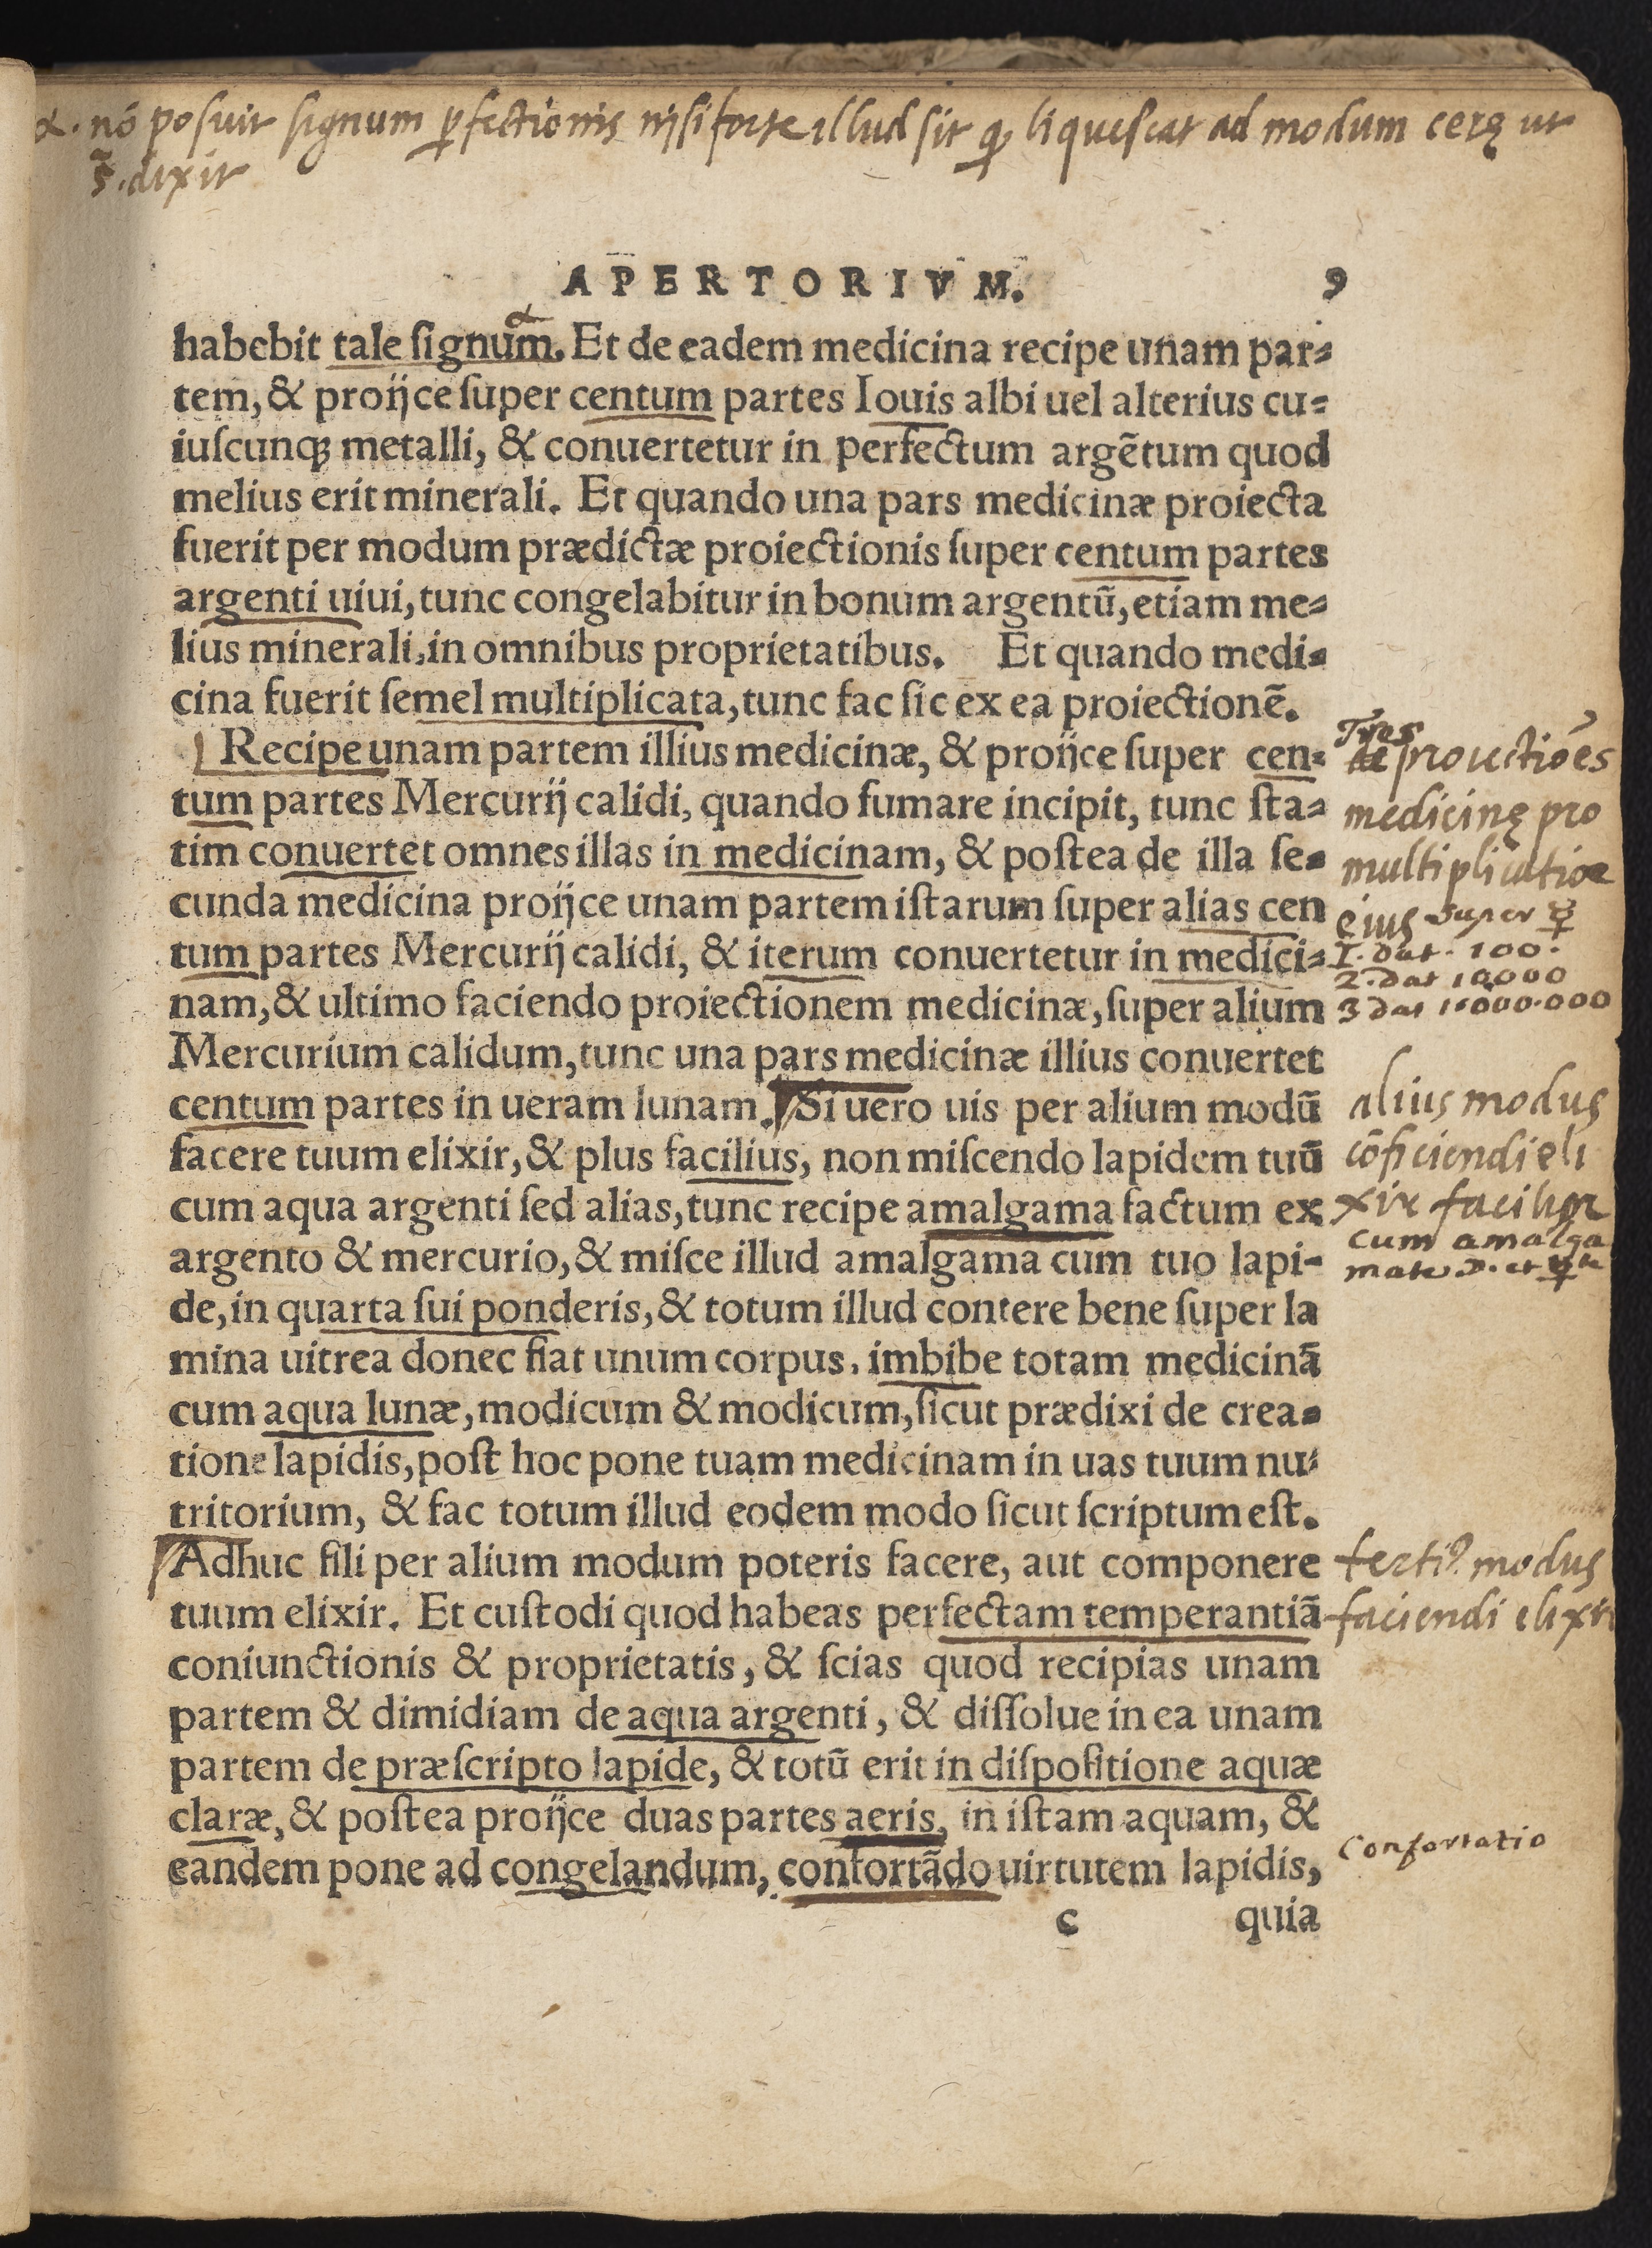 α. nō posuit signum ꝑfectionis nisi forte illud sit ꝙ liquescat ad modum cerę ut
s̃. dixit
APERTORIVM. 9
α
habebit tale ſignum. Et de eadem medicina recipe unam par-
tem, & proijce ſuper centum partes Iouis albi uel alterius cu-
iuſcunq; metalli, & conuertetur in perfectum argẽtum quod
melius erit minerali. Et quando una pars medicinæ proiecta
fuerit per modum prædictæ proiectionis ſuper centum partes
argenti uiui, tunc congelabitur in bonum argentũ, etiam me-
lius minerali, in omnibus proprietatibus. Et quando medi-
cina fuerit ſemel multiplicata, tunc fac ſic ex ea proiectionẽ.
Recipe unam partem illius medicinæ, & proijce ſuper cen-
tum partes Mercurij calidi, quando fumare incipit, tunc ſta-
tim conuertet omnes illas in medicinam, & poſtea de illa ſe-
cunda medicina proijce unam partem iſtarum ſuper alias cen
tum partes Mercurij calidi, & iterum conuertetur in medici-
nam, & ultimo faciendo proiectionem medicinæ, ſuper alium
Mercurium calidum, tunc una pars medicinæ illius conuertet
centum partes in ueram lunam. Si uero uis per alium modũ
facere tuum elixir, & plus facilius, non miſcendo lapidem tuũ
cum aqua argenti ſed alias, tunc recipe amalgama factum ex
argento & mercurio, & miſce illud amalgama cum tuo lapi-
de, in quarta ſui ponderis, & totum illud contere bene ſuper la
mina uitrea donec fiat unum corpus, imbibe totam medicinã
cum aqua lunæ, modicum & modicum, ſicut prædixi de crea-
tione lapidis, poſt hoc pone tuam medicinam in uas tuum nu-
tritorium, & fac totum illud eodem modo ſicut ſcriptum eſt.
Adhuc fili per alium modum poteris facere, aut componere
tuum elixir. Et cuſtodi quod habeas perfectam temperantiã
coniunctionis & proprietatis, & ſcias quod recipias unam
partem & dimidiam de aqua argenti, & diſſolue in ea unam
partem de præſcripto lapide, & totũ erit in diſpoſitione aquæ
claræ, & poſtea proijce duas partes aeris, in iſtam aquam, &
eandem pone ad congelandum, confortãdo uirtutem lapidis,
c quia
Tres
proiectiões
medicinę pro
multiplicatioe
eius super ☿
1. dat. 100.
2. dat 10000
3 dat 1000.000
alius modus
cōficiendi eli
xir facilior
cum amalga
mate ☽. et ☿
tertiꝰ modus
faciendi elixir
Confortatio